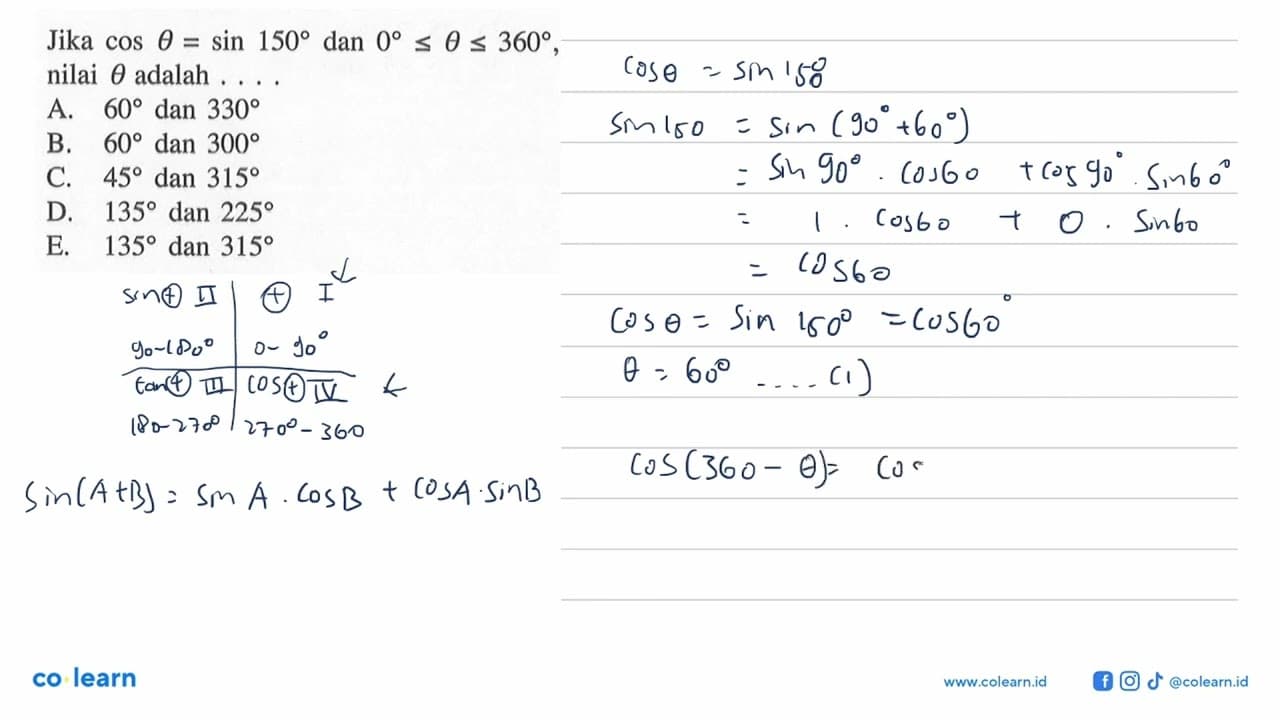 Jika cos θ = sin 150° dan 0° ≤ θ ≤ 360°,
nilai θ adalah . . . .
A. 60° dan 330°
B. 60° dan 300°
C. 45° dan 315°
D. 135° dan 225°
E. 135° dan 315°
sin⊕ II | ⊕ I ↓
90-180° | 0- 90°
tan⊕ III | cos⊕ IV ←
180-270° | 270°-360
Sin(A+B) = sin A . cos B + cos A . sin B
cos θ = sin 150°
sin 150 = sin (90° + 60°)
= sin 90° . cos 60 + cos 90° . sin 60°
= 1 . cos 60 + 0 . sin 60
= cos 60
cos θ = sin 150° = cos 60°
θ = 60° .... (1)
cos (360 - θ) = cos
co learn
www.colearn.id
@colearn.id